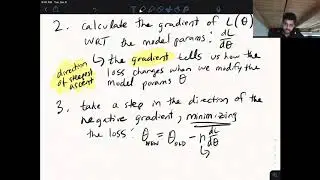 2. calculate the gradient of L(θ)
WRT the model params: dL/dθ
↳ the gradient tells us how the
direction of steepest ascent
loss changes when we modify the
model params θ
3. take a step in the direction of the
negative gradient, minimizing
the loss: θNEW = θOLD - n dL/dθ
↳